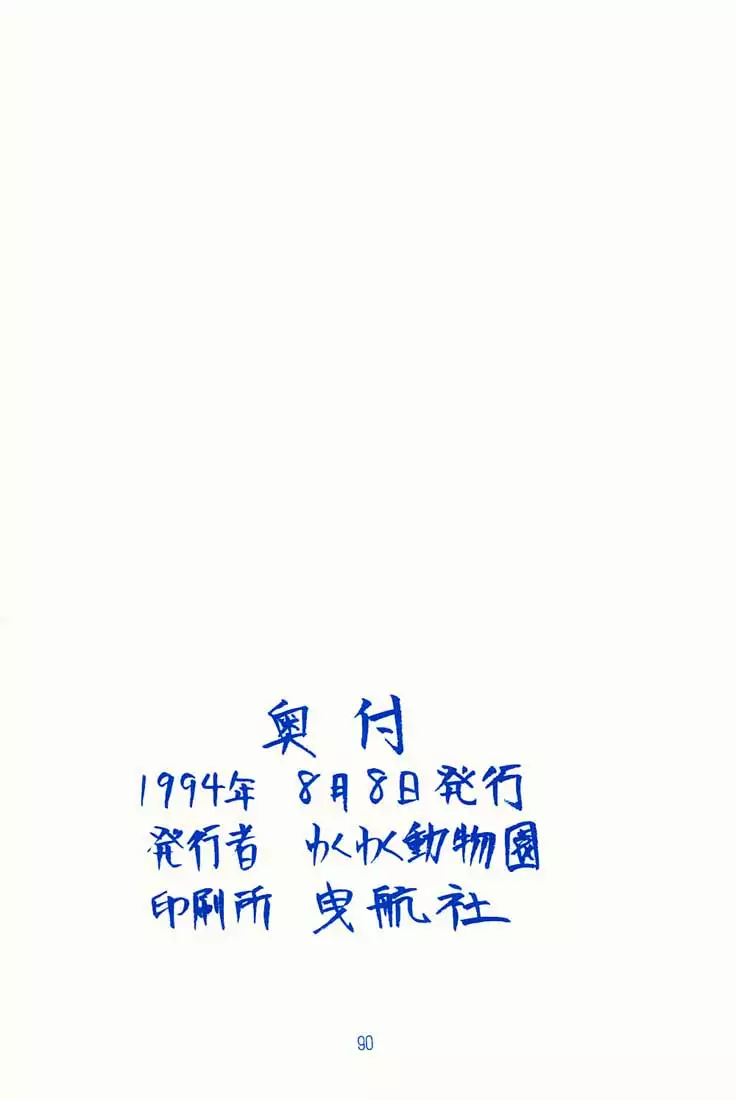 奥付
1994年 8月8日発行
発行者 わくわく動物園
印刷所 曳航社
90